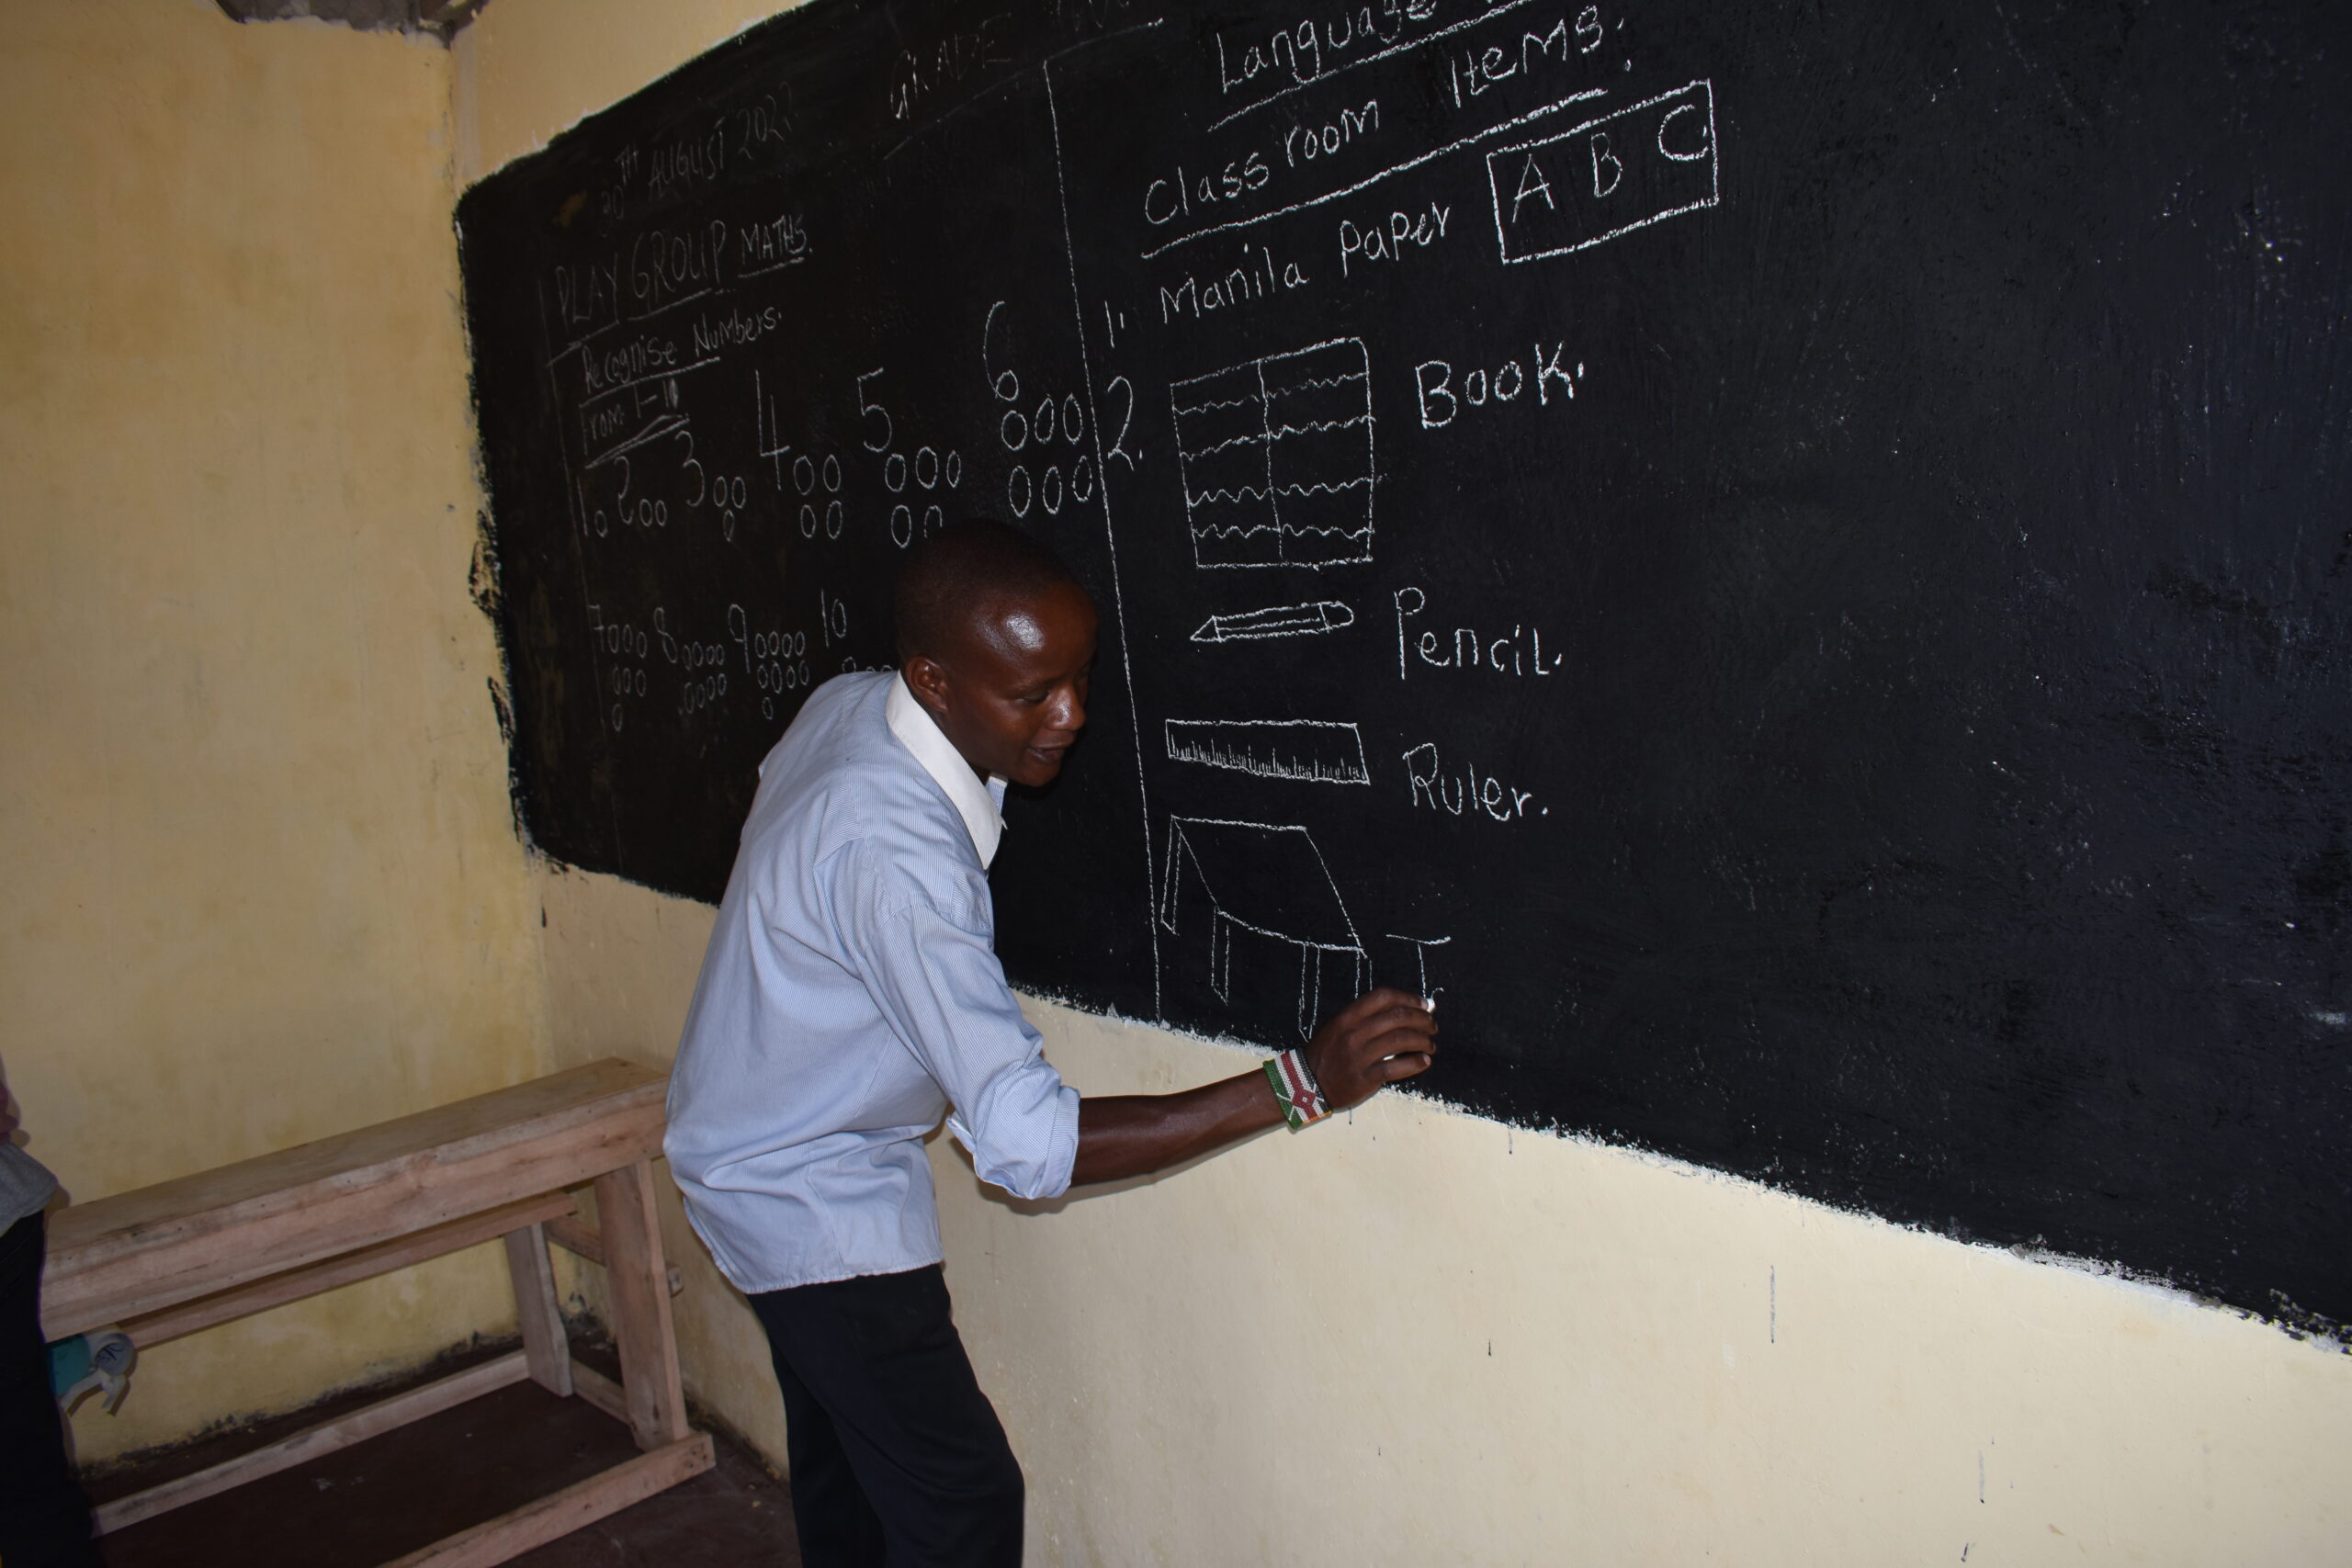 20TH AUGUST 2022
PLAY GROUP MATHS.
Recognise Numbers.
1-10
1 2 3 4 5 6
7 8 9 10
GRADE
Language
Classroom Items.
1. Manila Paper A B C
2. Book.
Pencil.
Ruler.
T